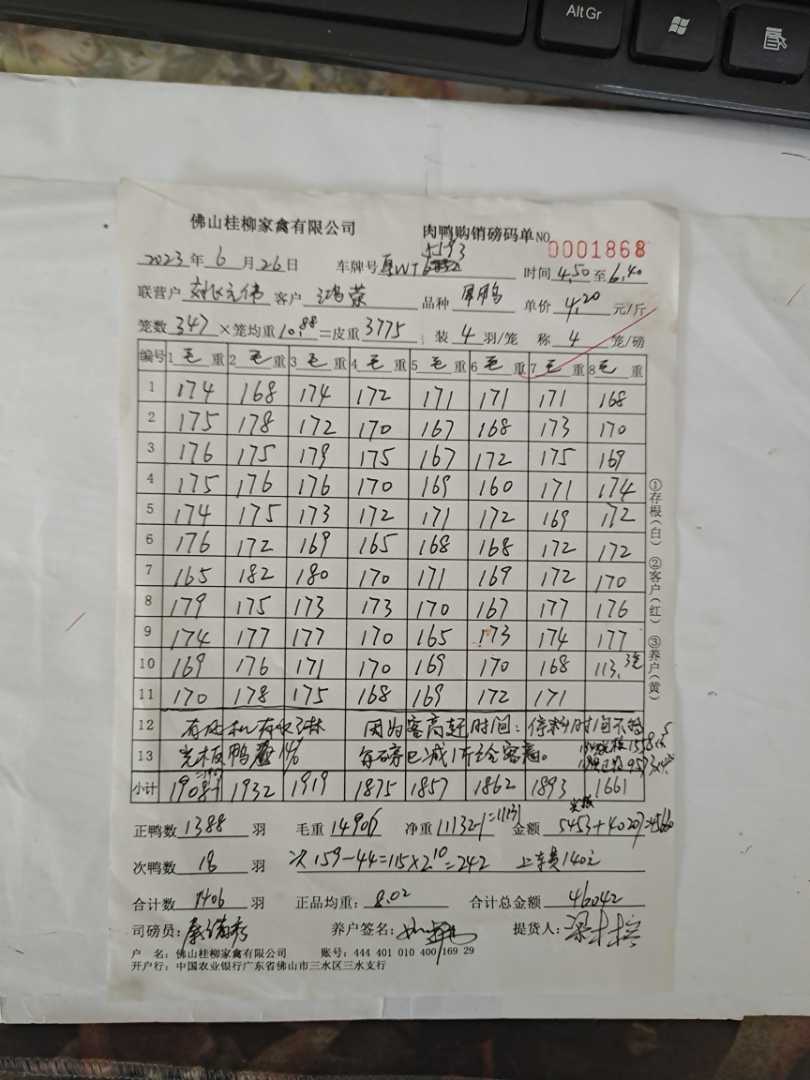 Alt Gr
佛山桂柳家禽有限公司 肉鸭购销磅码单 NO 0001868
5193
2023年6月26日 车牌号 时间4.50至6.40
联营户 客户 鸿荣 品种 单价4.20元/斤
笼数347×笼均重10.88=皮重3775;装4羽/笼 称4笼/磅
编号 1毛重 2毛重 3毛重 4毛重 5毛重 6毛重 7毛重 8毛重
1 174 168 174 172 171 171 171 168
2 175 178 172 170 167 168 173 170
3 176 175 179 175 167 172 175 169
4 175 176 176 170 169 160 171 174
5 174 175 173 172 171 172 169 172
6 176 172 169 165 168 168 172 172
7 165 182 180 170 171 169 172 170
8 179 175 173 173 170 167 177 176
9 174 177 177 170 165 173 174 177
10 169 176 171 170 169 170 168 113.3笼
11 170 178 175 168 169 172 171
12 因为客高赶时间:停料时间不够
13 光板鸭 1% 每磅已减1斤给客高。
小计 1908 1932 1919 1875 1857 1862 1893 1661
正鸭数1388羽 毛重14906 净重11132-1=11131 金额5453+40207=45660
次鸭数18羽 次159-44=115×2.10=242 上车费140元
合计数1406羽 正品均重:8.02 合计总金额46042
司磅员: 养户签名: 提货人:
户 名:佛山桂柳家禽有限公司 账号:444 401 010 400 169 29
开户行:中国农业银行广东省佛山市三水区三水支行
①存根(白) ②客户(红) ③养户(黄)